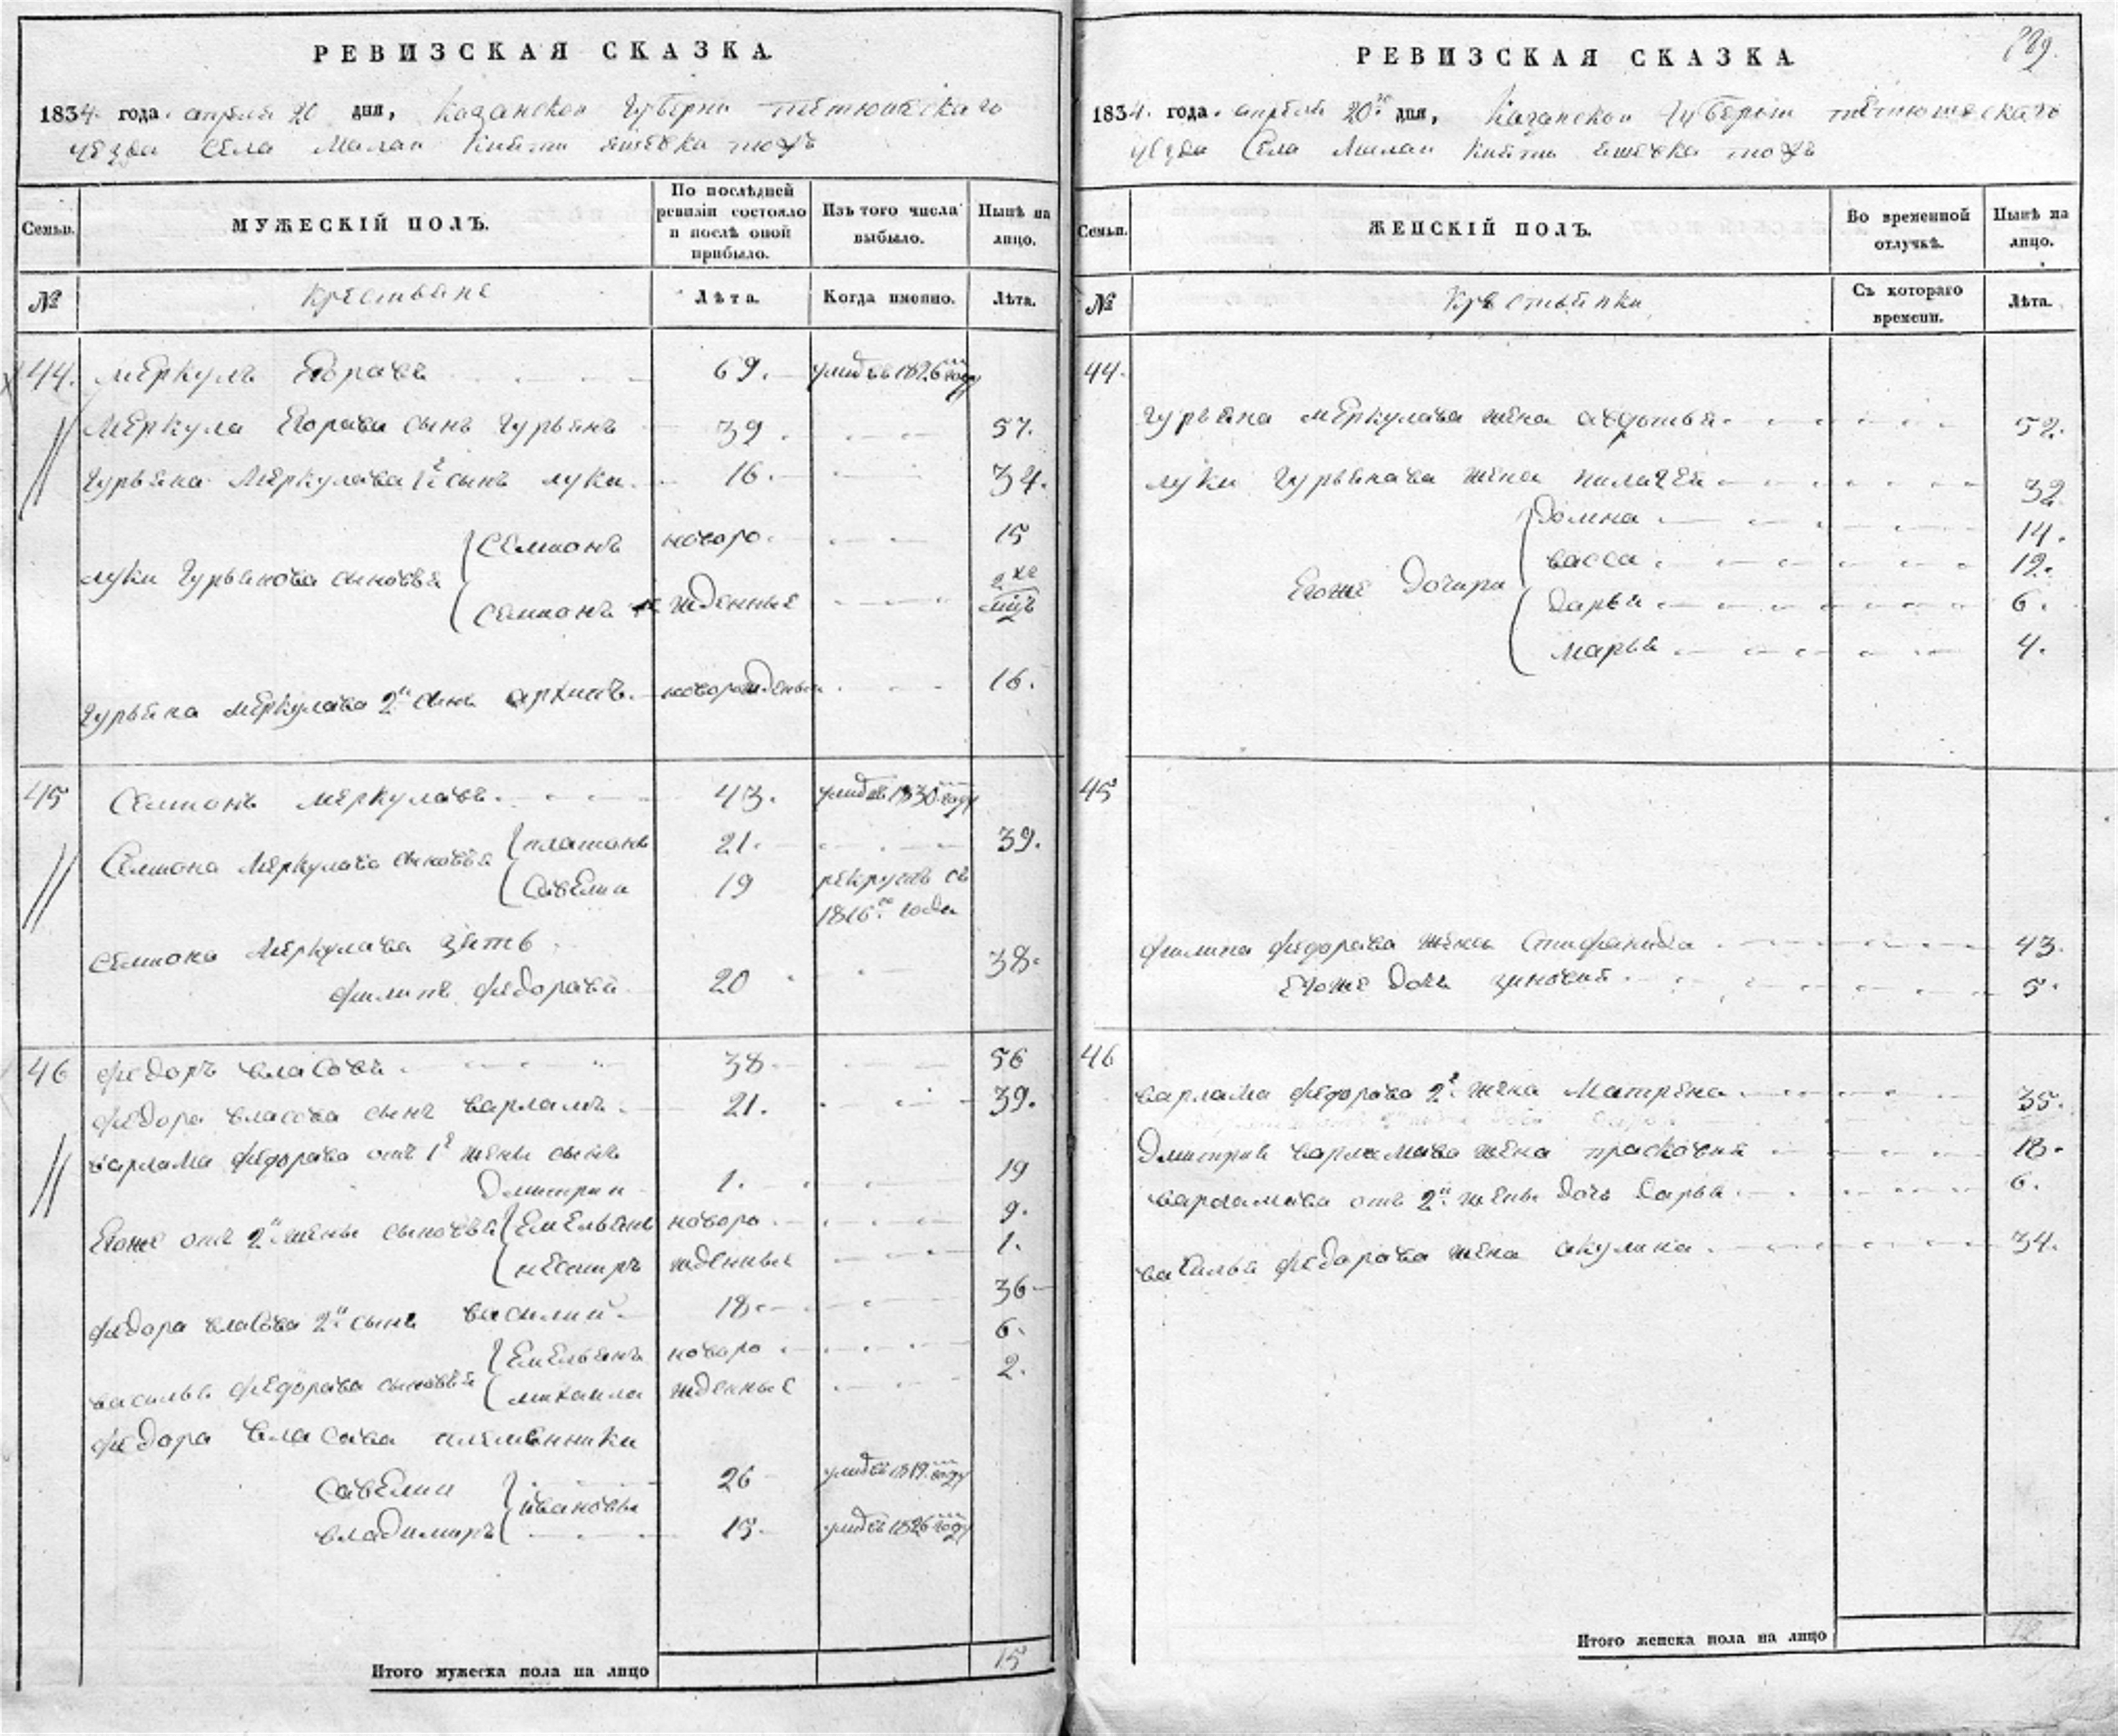 РЕВИЗСКАЯ СКАЗКА.
1834. года. апреля 20 дня, Казанской Губерни тетюшскаго
уезда Села Малаи тожъ
Семьи. МУЖЕСКІЙ ПОЛЪ. По послѣдней ревизіи состояло и послѣ оной прибыло. Изъ того числа выбыло. Нынѣ на лицо.
№ Крестьяне Лѣта. Когда именно. Лѣта.
44. Меркулъ Егоравъ 69. умидъ въ 1826 году
Меркула Егорава сынъ Гурьянъ 39. 57.
Гурьяна Меркулава 1й сынъ лука. 16. 34.
Семионъ новоро. 15
луки Гурьянова сыновья
Семионъ жденные 2хъ мцъ
Гурьяна меркулава 2й сынъ архипъ. новорожденъи 16.
45 Семионъ меркулавъ. 43. умидъ въ 1830 году
платонъ 21. 39.
Семиона Меркулава сыновья
Савелии 19 рекрутъ съ
1816го года
Семиона Меркулава зять
филипъ федоравъ 20 38.
46 федоръ власовъ. 38 56
федора власова сынъ варламъ. 21. 39.
варлама федорава отъ 1й жены сынъ
Дмитрии 1. 19
Егоже отъ 2й жены сыновья Емельянъ новоро 9.
несторъ жденные 1.
федора власова 2й сынъ василии 18. 36
Емельянъ новоро 6.
василья федорава сыновья
михаила жденные 2.
федора власава племянники
Савелии 26 умидъ въ 1819 году
ивановы
владимиръ 15. умидъ въ 1826 году
Итого мужеска пола на лицо 15
РЕВИЗСКАЯ СКАЗКА
889.
1834. года. апреля 20го дня, Казанскои Губернии тетюшескаго
уезда Села Малаи тожъ
Семьи. ЖЕНСКІЙ ПОЛЪ. Во временной отлучкѣ. Нынѣ на лицо.
№ Крестьянки Съ котораго времени. Лѣта.
44.
Гурьяна меркулава жена авдотья. 52.
луки Гурьянава жена пилагея 32
Домна 14.
васса 12.
Егоже Дочири
дарья 6.
марья 4.
45
филипа федорава жена Стифанида 43.
Егоже дочь зиновия. 5.
46
варлама федорава 2й жена Матрена 35.
Дмитрия варламава жена прасковия 18.
варламава отъ 2й жены дочь Дарья. 6.
василья федорава жена акулина 34.
Итого женска пола на лицо